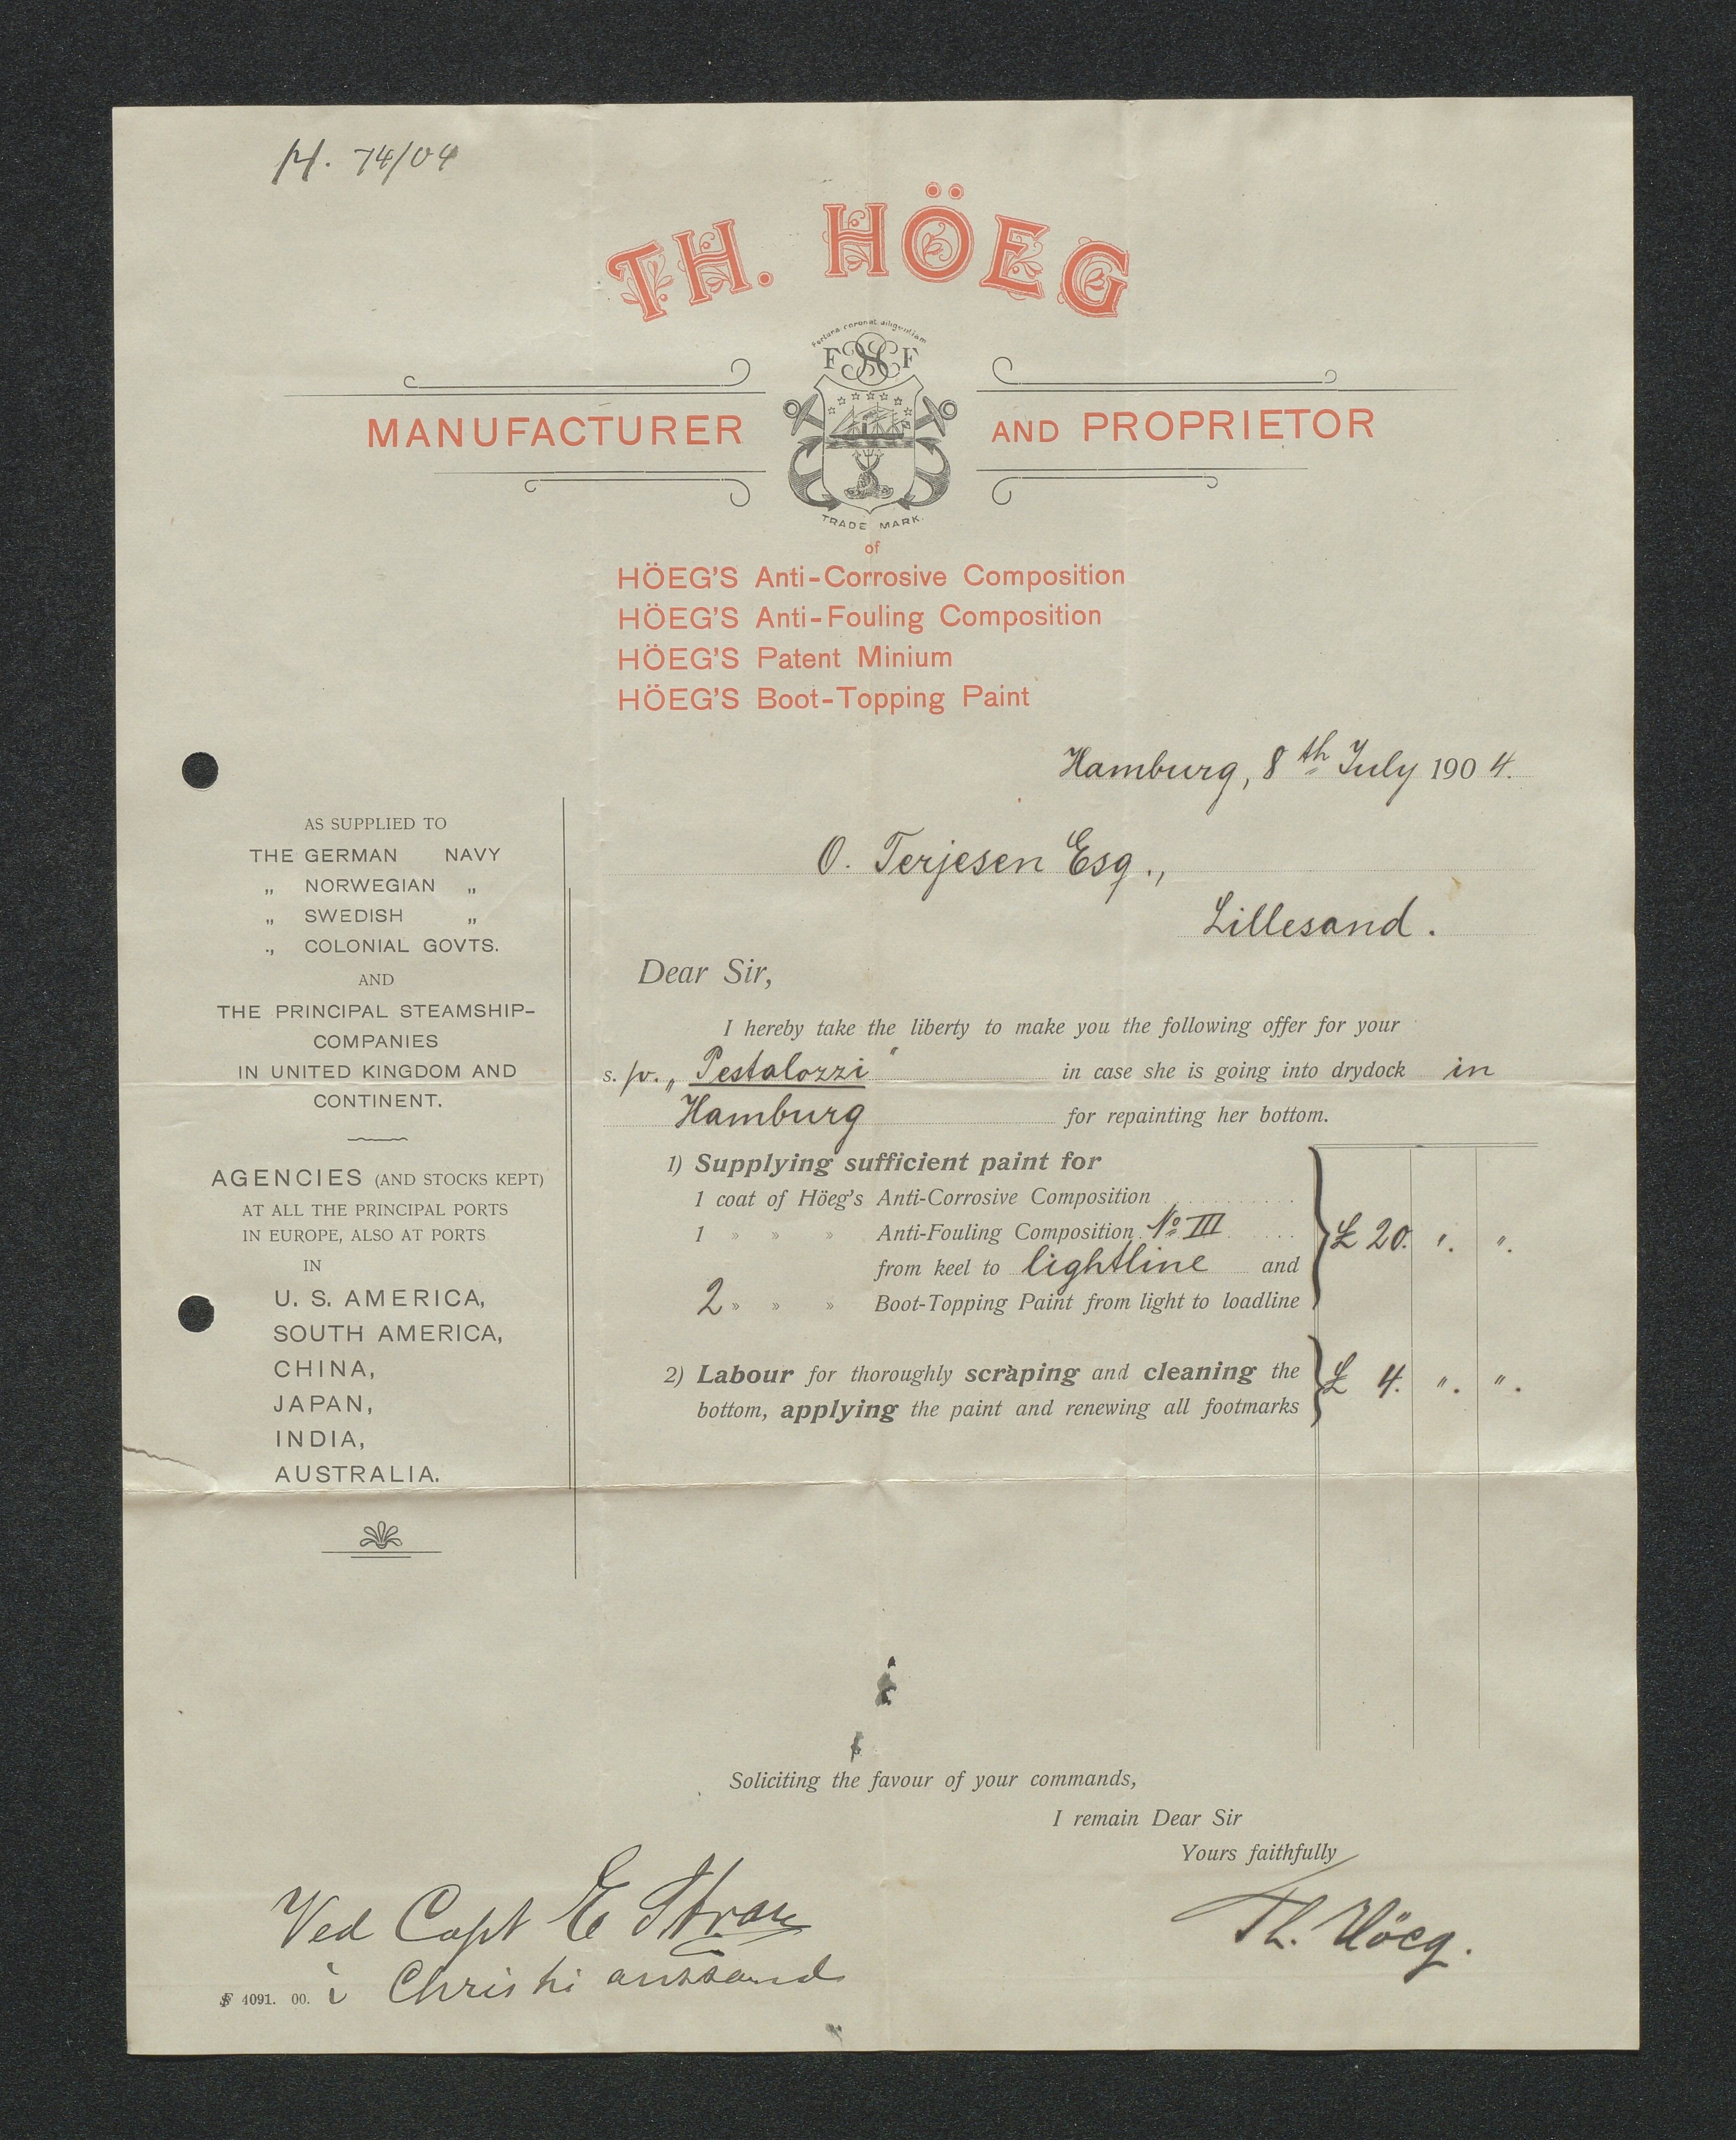 H. 74/04
TH. HÖEG
Fortuna coronat diligentiam
F F
MANUFACTURER AND PROPRIETOR
TRADE MARK.
of
HÖEG'S Anti-Corrosive Composition
HÖEG'S Anti-Fouling Composition
HÖEG'S Patent Minium
HÖEG'S Boot-Topping Paint
Hamburg, 8th July 1904.
O. Terjesen Esq.,
Lillesand.
AS SUPPLIED TO
THE GERMAN NAVY
„ NORWEGIAN „
„ SWEDISH „
„ COLONIAL GOVTS.
AND
THE PRINCIPAL STEAMSHIP-
COMPANIES
IN UNITED KINGDOM AND
CONTINENT.
AGENCIES (AND STOCKS KEPT)
AT ALL THE PRINCIPAL PORTS
IN EUROPE, ALSO AT PORTS
IN
U. S. AMERICA,
SOUTH AMERICA,
CHINA,
JAPAN,
INDIA,
AUSTRALIA.
Dear Sir,
I hereby take the liberty to make you the following offer for your
s. v. „Pestalozzi" in case she is going into drydock in
Hamburg for repainting her bottom.
1) Supplying sufficient paint for
1 coat of Höeg's Anti-Corrosive Composition
1 » » » Anti-Fouling Composition No III
from keel to lightline and
£ 20. ". ".
2 » » » Boot-Topping Paint from light to loadline
2) Labour for thoroughly scraping and cleaning the
bottom, applying the paint and renewing all footmarks
£ 4. ". ".
Soliciting the favour of your commands,
I remain Dear Sir
Yours faithfully
Th. Höeg.
Ved Capt E
i Christianssand
4091. 00.